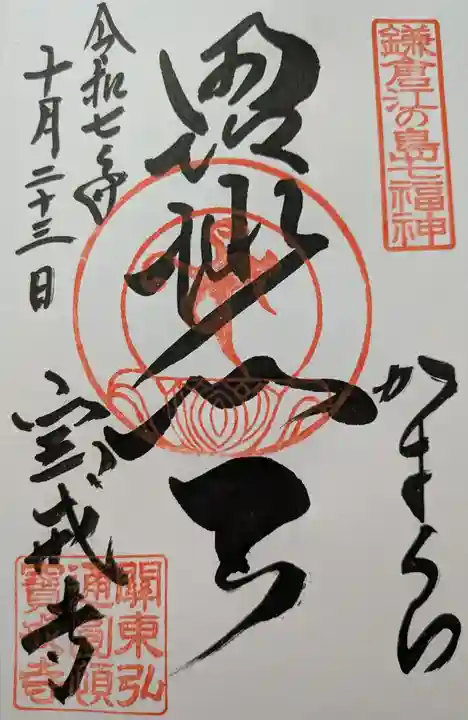 鎌倉江の島七福神
かまくら
毘沙門天
宝戒寺
令和七年
十月二十三日
關東弘
通圓頓
寶戒寺